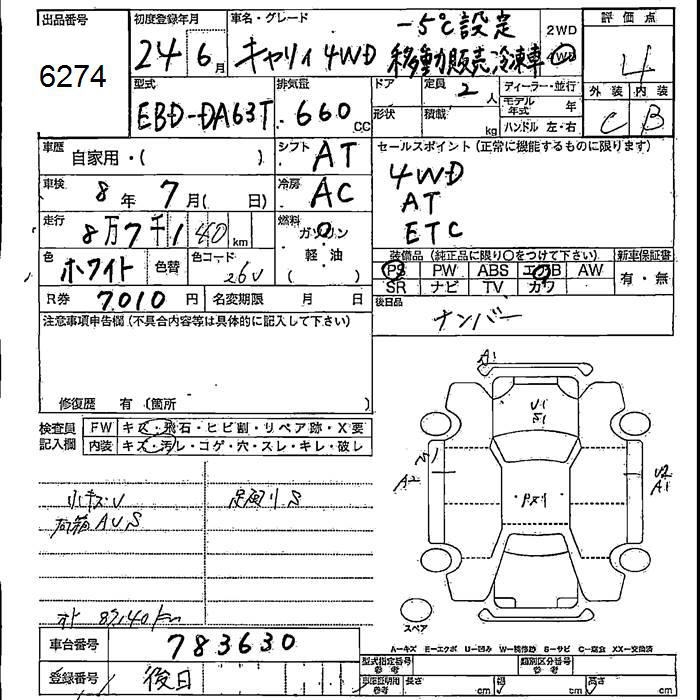 出品番号 6274
初度登録年月 24年 6月
車名・グレード キャリィ 4WD -5℃設定 移動販売冷凍車
2WD 4WD
評価点 4
外装 C 内装 B
型式 EBD-DA63T
排気量 660 CC
ドア 形状
定員 2人
積載 kg
ディーラー・並行
モデル年式 年
ハンドル 左・右
車歴 自家用・( )
シフト AT
車検 8年 7月( 日)
冷房 AC
走行 8万7千140 km
燃料 ガソリン 軽油 ( )
色 ホワイト 色替 色コード 26U
R券 7010 円 名変期限 月 日
セールスポイント (正常に機能するものに限ります)
4WD
AT
ETC
装備品 (純正品に限り○をつけて下さい) 新車保証書
PS PW ABS エアB AW 有・無
SR ナビ TV カワ
後日品
ナンバー
注意事項申告欄 (不具合内容等は具体的に記入して下さい)
修復歴 有 (箇所 )
検査員記入欄
FW キズ・飛石・ヒビ割・リペア跡・X要
内装 キズ・汚レ・コゲ・穴・スレ・キレ・破レ
小キズ・U
荷箱 AUS
足廻り S
オド 87,140 km
A1
U1
A2
U2
A1
スペア
A-キズ E-エクボ U-凹み W-補修跡 S-サビ C-腐食 XX-交換済
車台番号 783630
登録番号 後日
型式指定番号 参考
類別区分番号 参考
車庫証明用 参考 長さ cm 幅 cm 高さ cm